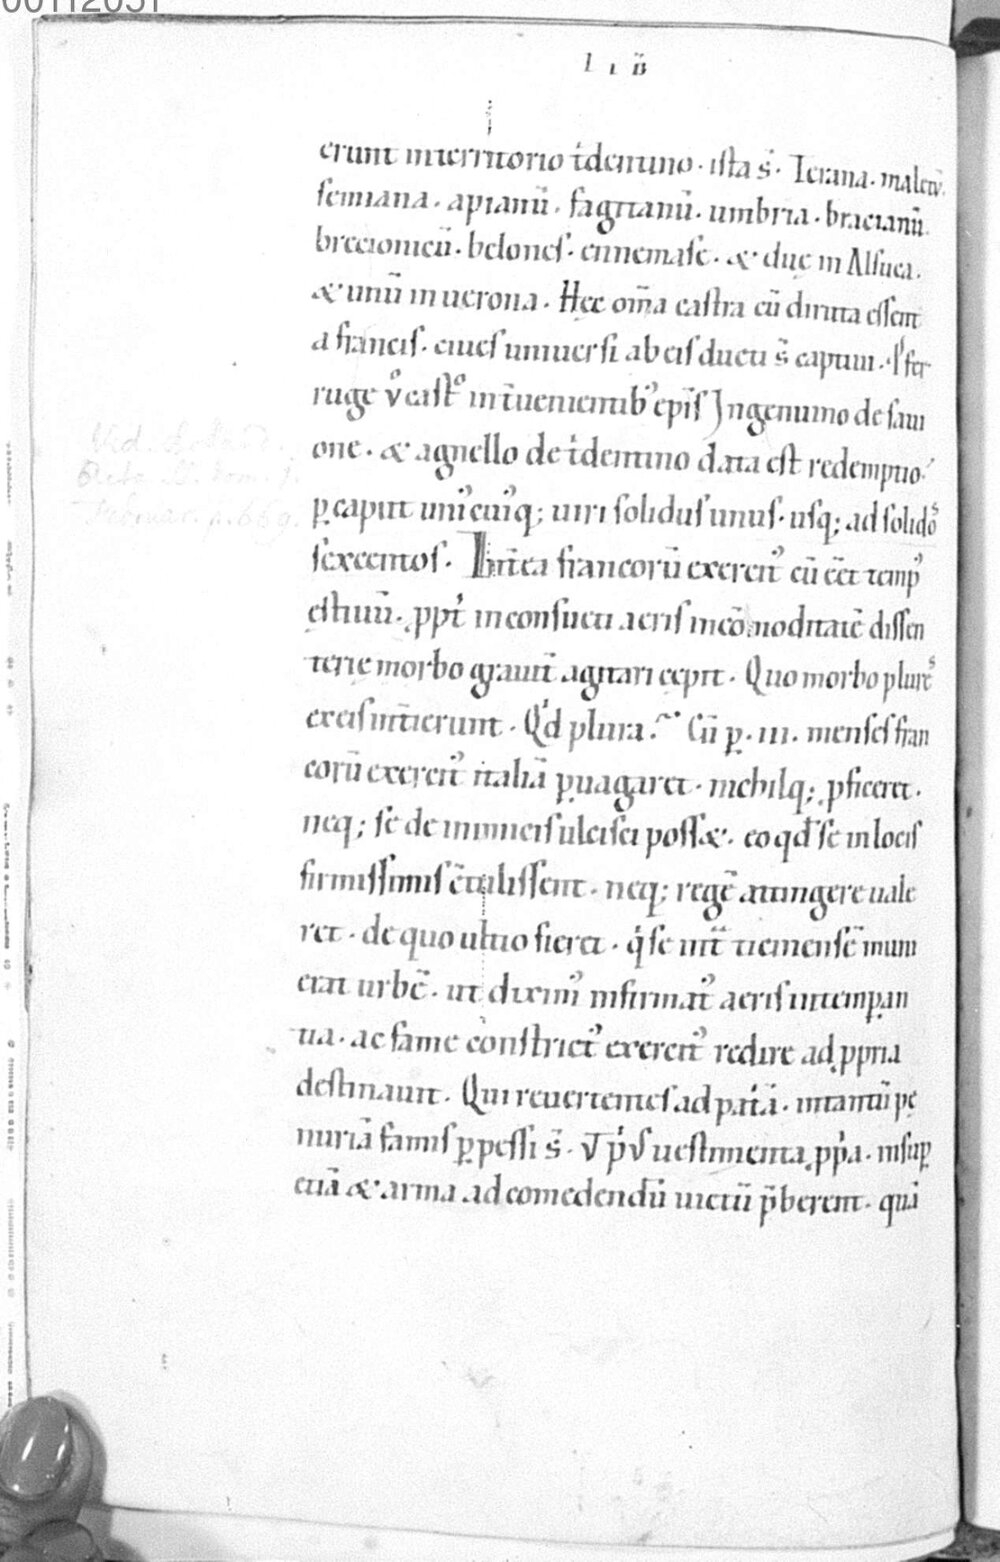 LIB
erunt in territorio t̄dentino · ista s̄ · Terana · maletū ·
semiana · apianū · fagitanū · umbria · bracianū ·
brecionicū · belones · ennemase · & due in Alsuca ·
& unū in uerona · Hęc om̄a castra cū diruta essent
a francis · ciues uniuersi ab eis ducti s̄ captiui · P̱ fer
ruge v̊ castº int̄uenientib; ep̄is Ingenuino de saui
one · & agnello de t̄dentino data est redemptio ·
p̱ caput uni'cui'q; uiri solidus unus · usq; ad solidos
sexcentos · Int̄ea francorū exercit' cū ēēt temp'
ęstiuū · ꝓpt̄ inconsueti aeris incōmoditatē dissen
terie morbo grauit̄ agitari cępit · Quo morbo plures
ex eis int̄ierunt · Qd̄ plura? Cū p̱ · iii · menses fran
corū exercit' italiā p̱uagaret · nichilq; ꝓficeret ·
neq; se de inimicis ulcisci poss& · eo qd̄ se in locis
firmissimis c̄tulissent · neq; regē attingere uale
ret · de quo ultio fieret · q̄ se int̄ ticinensē muni
erat urbē · ut dixim' infirmat' aeris intemp̱an
tia · ac fame constrict' exercit' redire ad ꝓpria
destinauit · Qui reuertentes ad pat̄ā · in tantū pe
nuriā famis p̱pessi s̄ · ut p̄us uestimenta ꝓp̄a · insup̱
etiā & arma ad comedendū uictū p̄berent · quā